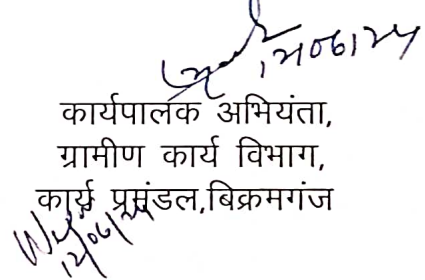 12/06/24
कार्यपालक अभियंता,
ग्रामीण कार्य विभाग,
कार्य प्रमंडल,बिक्रमगंज
12/06/24